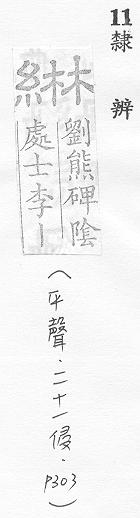 11隸辨
綝
劉熊碑陰
處士李丨
(平聲．二十一侵．P303)